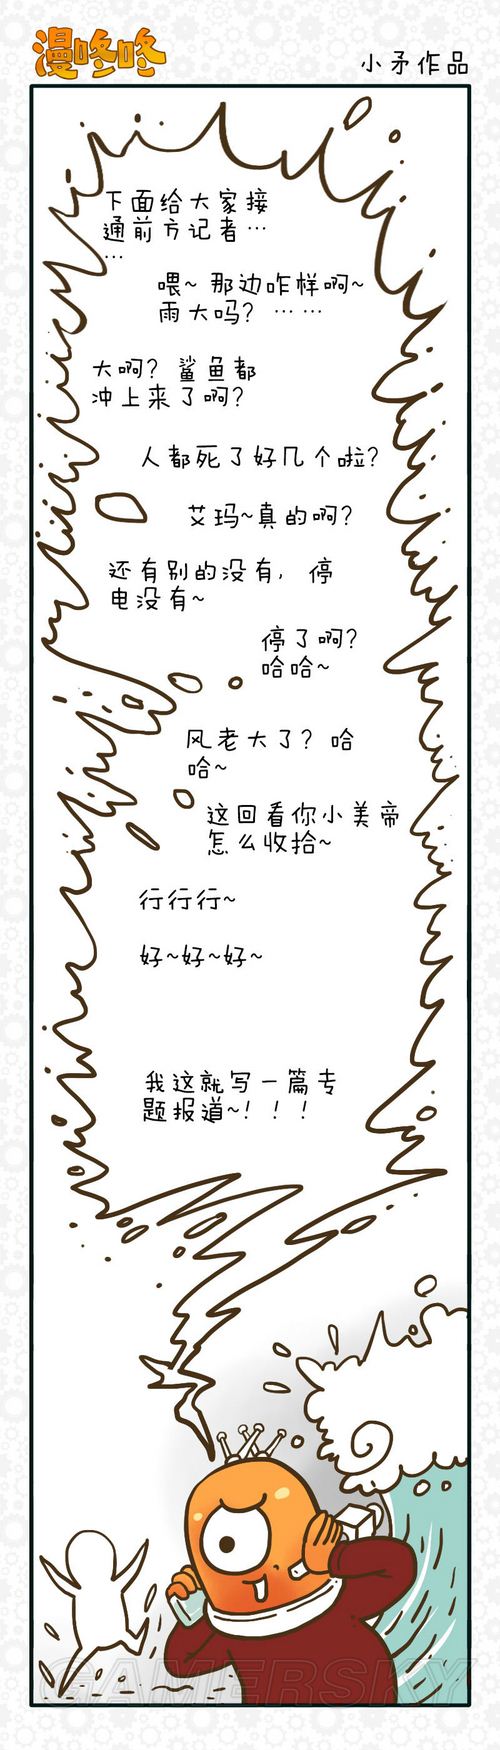 漫咚咚
小矛作品
下面给大家接
通前方记者…
…
喂~ 那边咋样啊~
雨大吗? ……
大啊? 鲨鱼都
冲上来了啊?
人都死了好几个啦?
艾玛~真的啊?
还有别的没有, 停
电没有~
停了啊?
哈哈~
风老大了? 哈
哈~
这回看你小美帝
怎么收拾~
行行行~
好~好~好~
我这就写一篇专
题报道~!!!
GAMERSKY